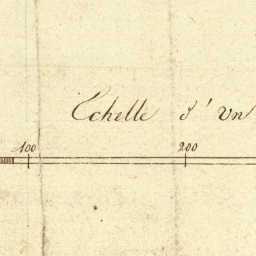 Echelle d' Un
100 200